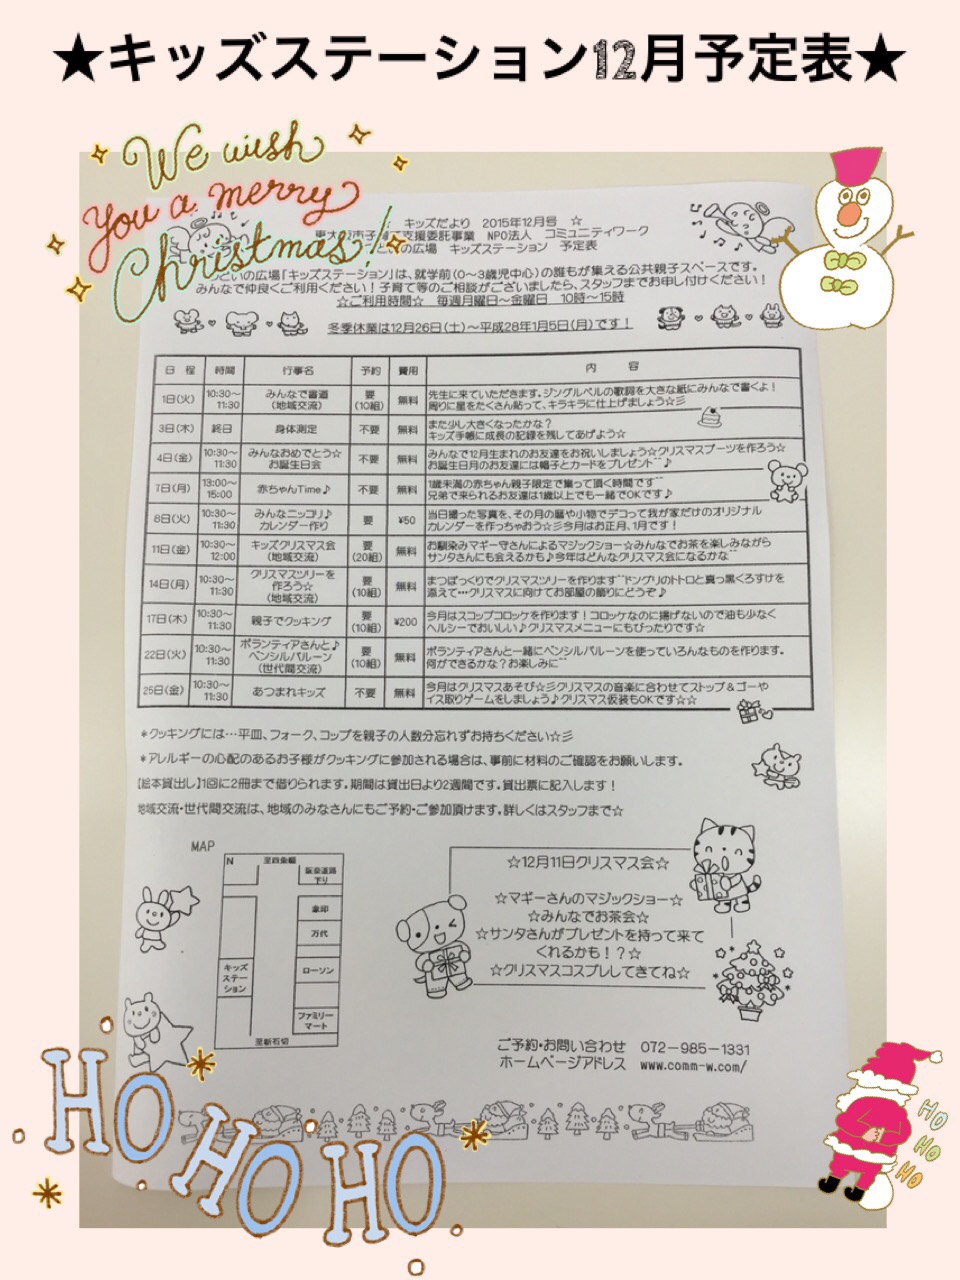 ★キッズステーション12月予定表★
We wish
You a merry
Christmas!
☆ キッズだより 2015年12月号 ☆
支援委託事業 NPO法人 コミュニティワーク
いの広場 キッズステーション 予定表
どいの広場「キッズステーション」は、就学前(0～3歳児中心)の誰もが集える公共親子スペースです。
みんなで仲良くご利用ください！子育て等のご相談がございましたら、スタッフまでお申し付けください！
☆ご利用時間☆ 毎週月曜日～金曜日 10時～15時
冬季休業は12月26日(土)～平成28年1月5日(月)です！
日 程 時間 行事名 予約 費用 内 容
1日(火) 10:30～11:30 みんなで書道(地域交流) 要(10組) 無料 先生に来ていただきます。ジングルベルの歌詞を大きな紙にみんなで書くよ！
周りに星をたくさん貼って、キラキラに仕上げましょう☆彡
3日(木) 終日 身体測定 不要 無料 また少し大きくなったかな？
キッズ手帳に成長の記録を残してあげよう☆
4日(金) 10:30～11:30 みんなおめでとう☆お誕生日会 不要 無料 みんなで12月生まれのお友達をお祝いしましょう☆クリスマスブーツを作ろう☆
お誕生日月のお友達には帽子とカードをプレゼント^^♪
7日(月) 13:00～15:00 赤ちゃんTime♪ 不要 無料 1歳未満の赤ちゃん親子限定で集って頂く時間です^^
兄弟で来られるお友達は1歳以上でも一緒でOKです♪
8日(火) 10:30～11:30 みんなニッコリ♪カレンダー作り 要 ¥50 当日撮った写真を、その月の暦や小物でデコって我が家だけのオリジナル
カレンダーを作っちゃおう☆彡今月はお正月、1月です！
11日(金) 10:30～12:00 キッズクリスマス会(地域交流) 要(20組) 無料 お馴染みマギー守さんによるマジックショー☆みんなでお茶を楽しみながら
サンタさんにも会えるかも♪今年はどんなクリスマス会になるかな^^
14日(月) 10:30～11:30 クリスマスツリーを作ろう☆(地域交流) 要(10組) 無料 まつぼっくりでクリスマスツリーを作ります^^ドングリのトトロと真っ黒くろすけを
添えて…クリスマスに向けてお部屋の飾りにどうぞ♪
17日(木) 10:30～11:30 親子でクッキング 要(10組) ¥200 今月はスコップコロッケを作ります！コロッケなのに揚げないので油も少なく
ヘルシーでおいしい♪クリスマスメニューにもぴったりです☆
22日(火) 10:30～11:30 ボランティアさんと♪ペンシルバルーン(世代間交流) 要(10組) 無料 ボランティアさんと一緒にペンシルバルーンを使っていろんなものを作ります。
何ができるかな？お楽しみに^^
25日(金) 10:30～11:30 あつまれキッズ 不要 無料 今月はクリスマスあそび☆彡クリスマスの音楽に合わせてストップ＆ゴーや
イス取りゲームをしましょう♪クリスマス仮装もOKです☆☆
＊クッキングには…平皿、フォーク、コップを親子の人数分忘れずお持ちください☆彡
＊アレルギーの心配のあるお子様がクッキングに参加される場合は、事前に材料のご確認をお願いします。
【絵本貸出し】1回に2冊まで借りられます。期間は貸出日より2週間です。貸出票に記入します！
地域交流・世代間交流は、地域のみなさんにもご予約・ご参加頂けます。詳しくはスタッフまで☆
MAP
N 至四条畷
阪奈道路
下り
象印
万代
キッズ
ステー
ション
ローソン
ファミリー
マート
至新石切
☆12月11日クリスマス会☆
☆マギーさんのマジックショー☆
☆みんなでお茶会☆
☆サンタさんがプレゼントを持って来て
くれるかも！？☆
☆クリスマスコスプレしてきてね☆
ご予約・お問い合わせ 072－985－1331
ホームページアドレス www.comm-w.com/
HO HO HO
HO
HO
HO